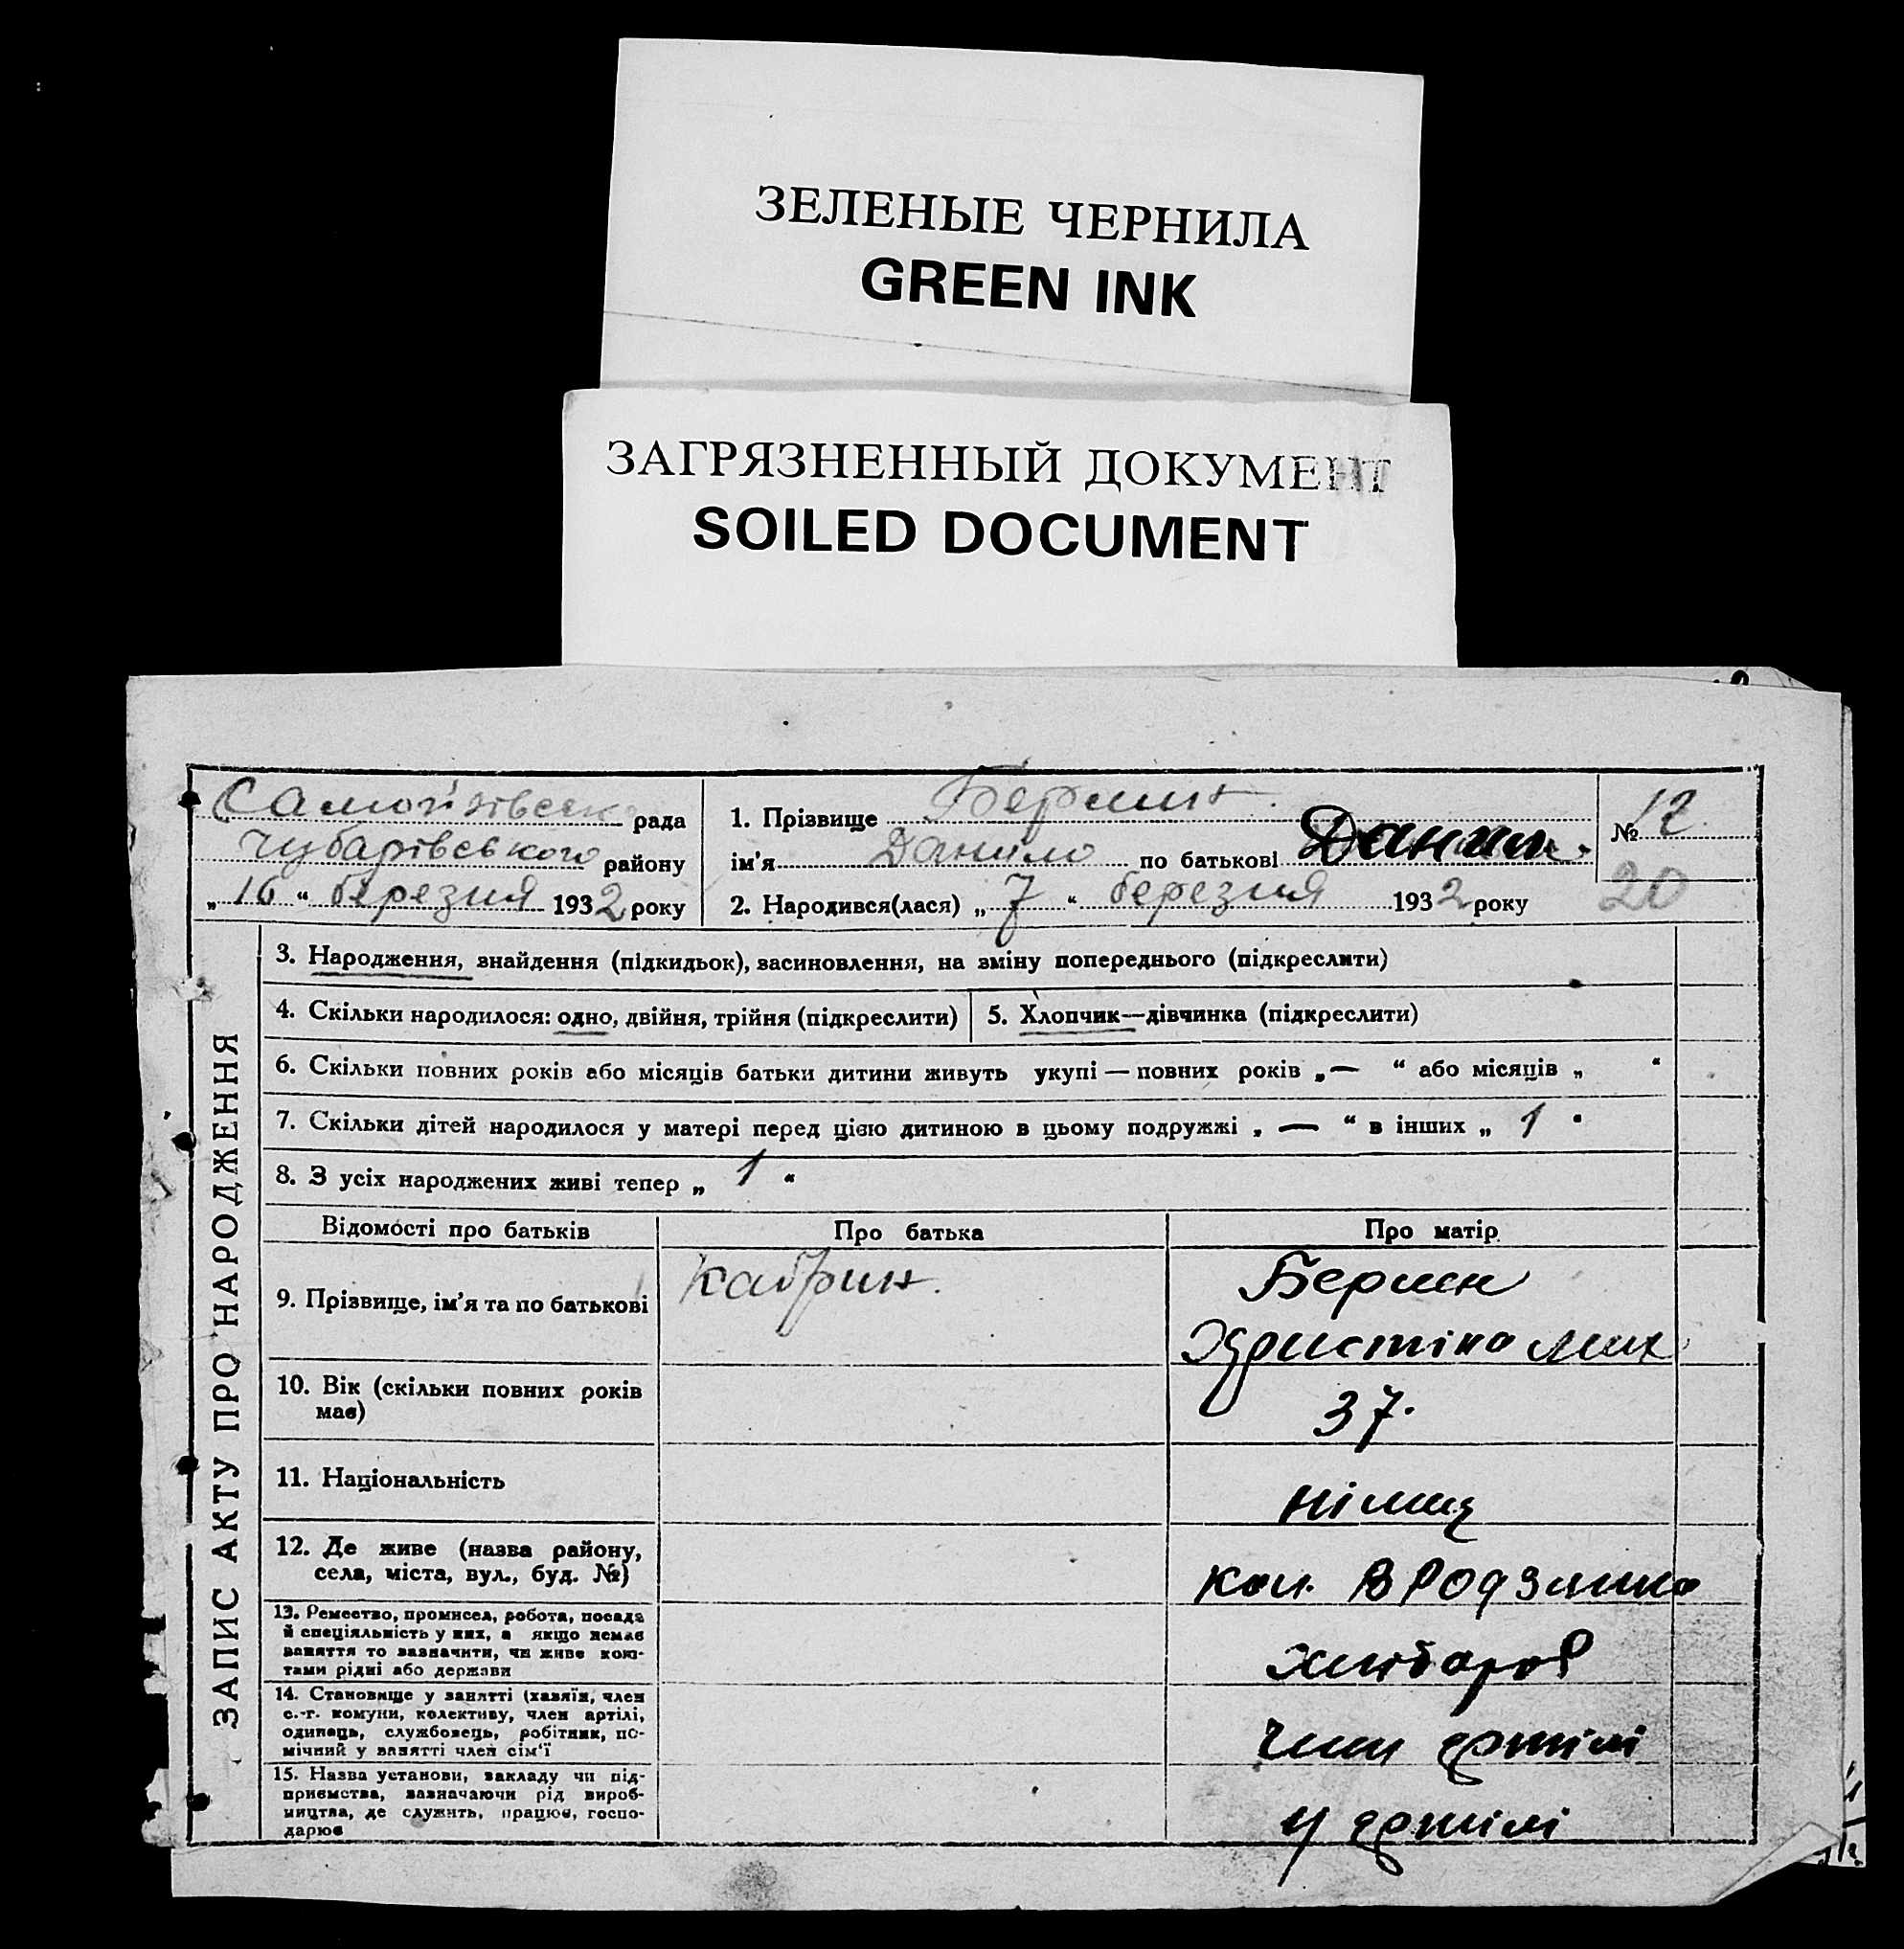 ЗЕЛЕНЫЕ ЧЕРНИЛА
GREEN INK
ЗАГРЯЗНЕННЫЙ ДОКУМЕНТ
SOILED DOCUMENT
рада
Чубарівського району
„ 16 “ березня 1932 року
1. Прізвище Берман.
ім'я Данило по батькові Данил.
2. Народився(лася) „ 7 “ березня 1932 року
№ 12.
20
ЗАПИС АКТУ ПРО НАРОДЖЕННЯ
3. Народження, знайдення (підкидьок), засиновлення, на зміну попереднього (підкреслити)
4. Скільки народилося: одно, двійня, трійня (підкреслити)
5. Хлопчик—дівчинка (підкреслити)
6. Скільки повних років або місяців батьки дитини живуть укупі — повних років „ — “ або місяців „ “
7. Скільки дітей народилося у матері перед цією дитиною в цьому подружжі „ — “ в інших „ 1 “
8. З усіх народжених живі тепер „ 1 “
Відомості про батьків
Про батька
Про матір
9. Прізвище, ім'я та по батькові
Христіна Мих
10. Вік (скільки повних років
має)
37.
11. Національність
12. Де живе (назва району,
села, міста, вул., буд. №)
кол.
13. Ремество, промисел, робота, посада
й спеціяльність у них, а якщо немає
заняття то зазначити, чи живе кош-
тами рідні або держави
хлібороб
14. Становище у занятті (хазяїн, член
с.-г. комуни, колективу, член артілі,
одинець, службовець, робітник, по-
мічний у занятті член сім'ї
член артілі
15. Назва установи, закладу чи під-
приємства, зазначаючи рід вироб-
ництва, де служить, працює, госпо-
дарює
у артілі